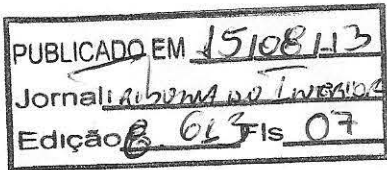 PUBLICADO EM 15/08/13
Jornal: TRIBUNA DO INTERIOR
Edição 8.613 Fls 07